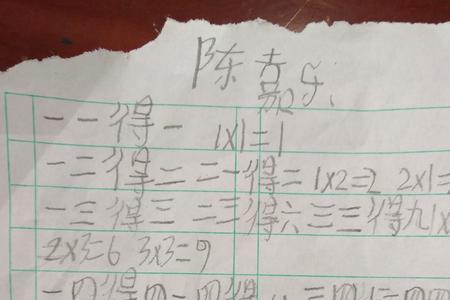 陈嘉乐
一一得一 1x1=1
一二得二 二一得二 1x2=2 2x1=
一三得三 二三得六 三三得九 1x
2x3=6 3x3=9
一四得四